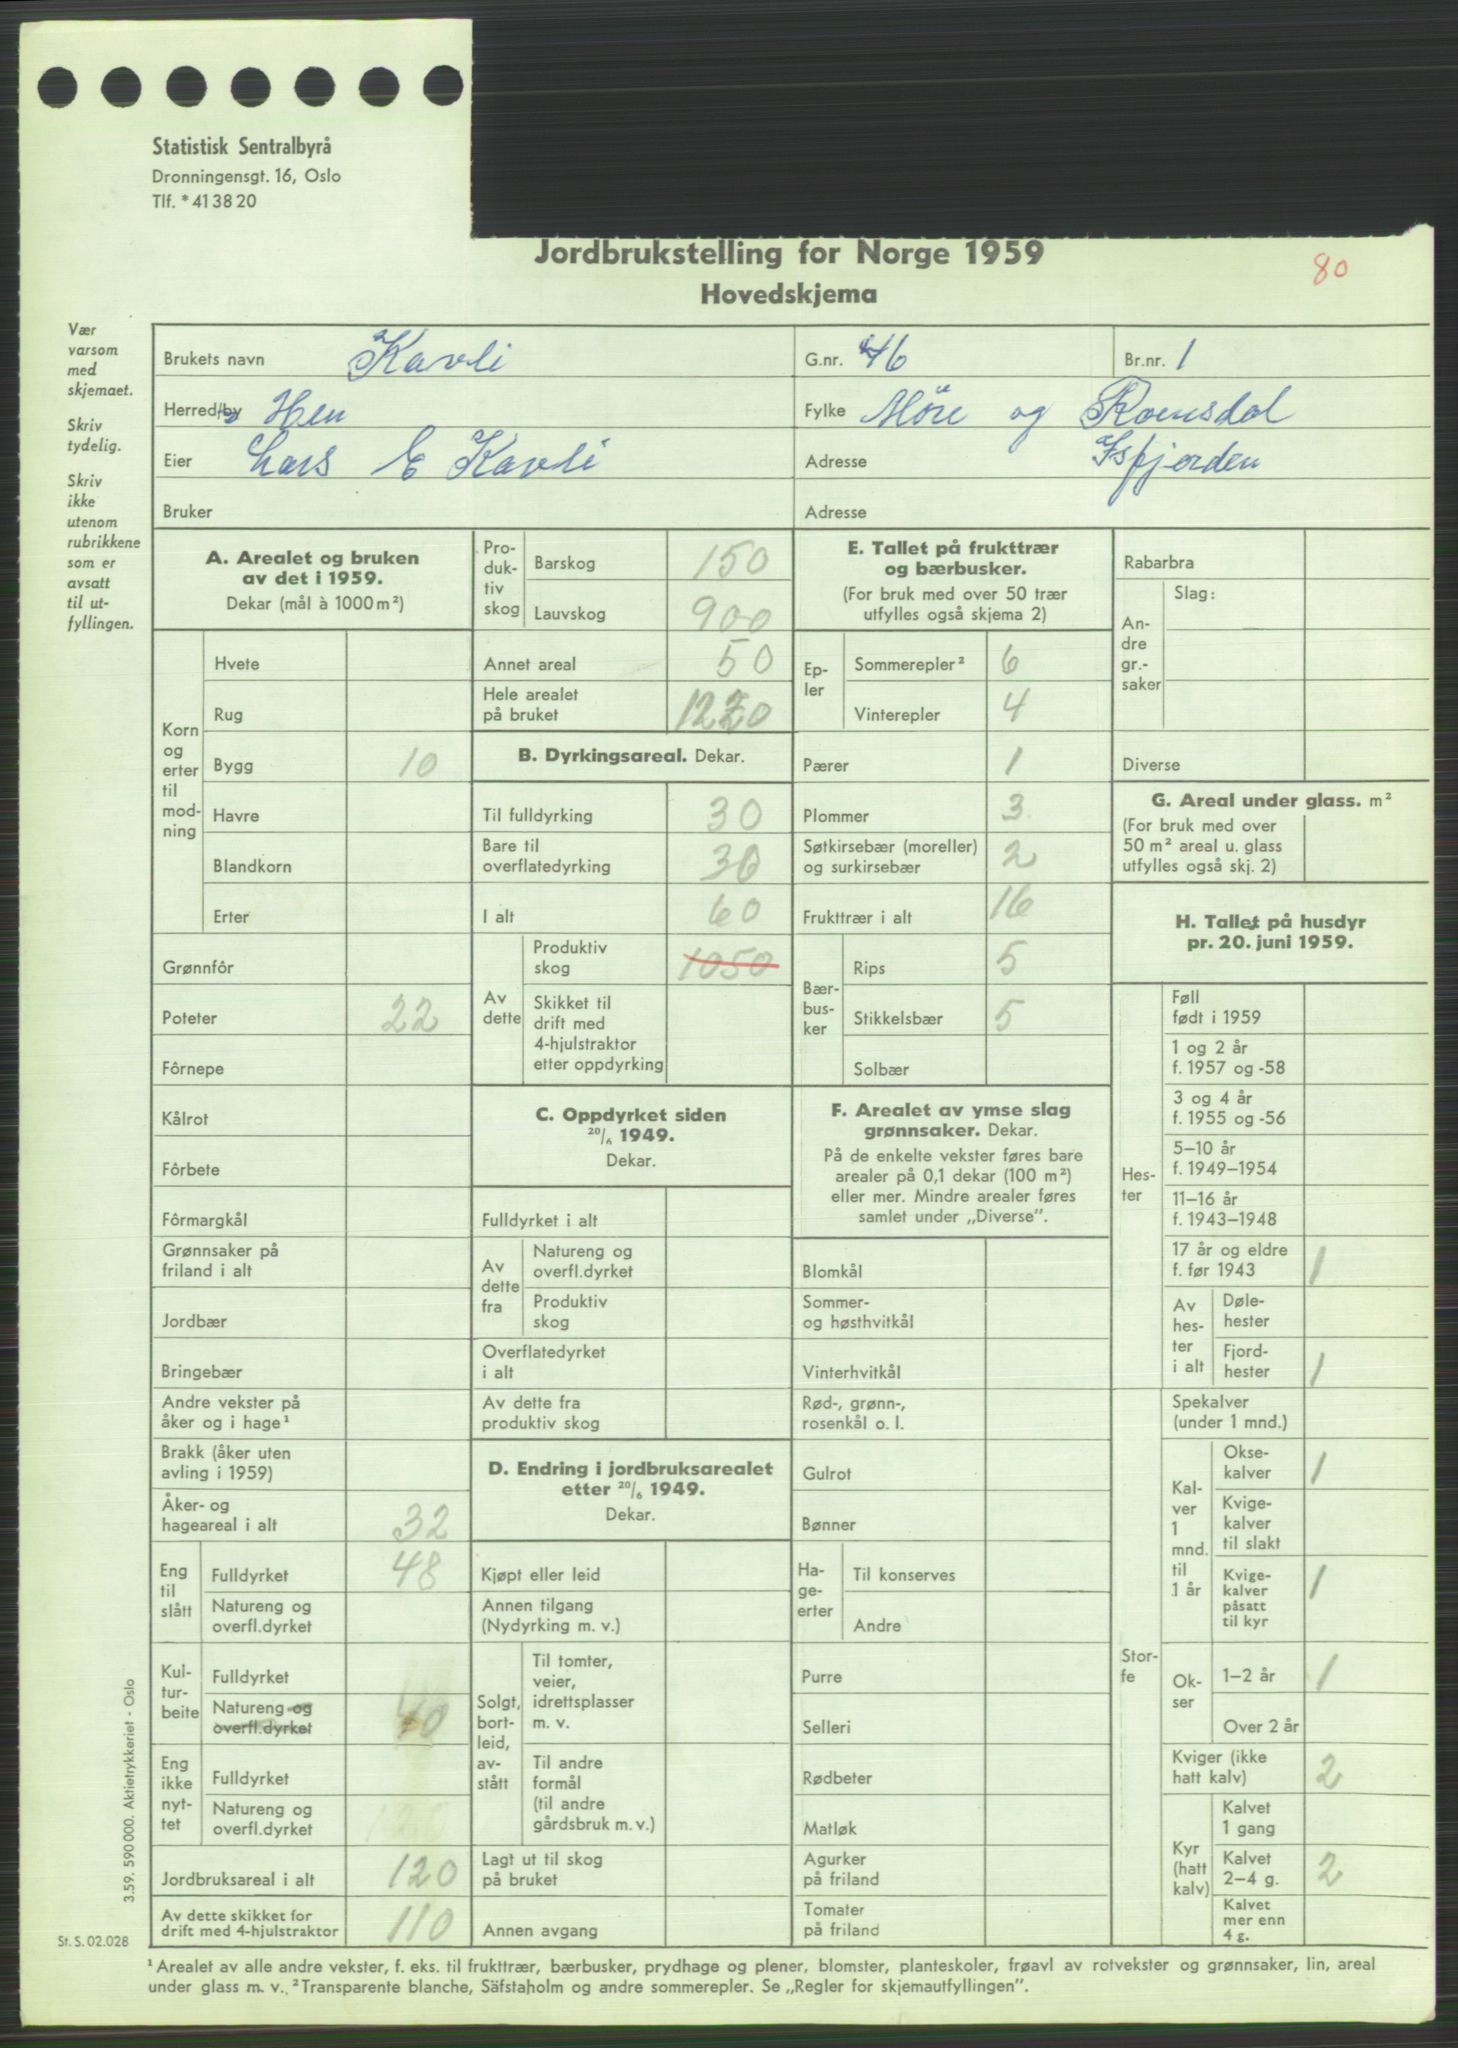 Statistisk Sentralbyrå
Dronningensgt. 16, Oslo
Tlf. * 41 38 20
Jordbrukstelling for Norge 1959
80
Hovedskjema
Vær
varsom
med
skjemaet.
Skriv
tydelig.
Skriv
ikke
utenom
rubrikkene
som er
avsatt
til ut-
fyllingen.
Brukets navn Kavli G.nr. 46 Br.nr. 1
Herred/by Hen Fylke Möre og Romsdal
Eier Lars E Kavli Adresse Isfjorden
Bruker Adresse
A. Arealet og bruken
av det i 1959.
Dekar (mål à 1000 m²)
Korn
og
erter
til
mod-
ning
Hvete
Rug
Bygg 10
Havre
Blandkorn
Erter
Grønnfôr
Poteter 22
Fôrnepe
Kålrot
Fôrbete
Fôrmargkål
Grønnsaker på
friland i alt
Jordbær
Bringebær
Andre vekster på
åker og i hage¹
Brakk (åker uten
avling i 1959)
Åker- og
hageareal i alt 32
Eng
til
slått
Fulldyrket 48
Natureng og
overfl.dyrket
Kul-
tur-
beite
Fulldyrket
Natureng og
overfl.dyrket 40
Eng
ikke
nyt-
tet
Fulldyrket
Natureng og
overfl.dyrket
Jordbruksareal i alt 120
Av dette skikket for
drift med 4-hjulstraktor 110
Pro-
duk-
tiv
skog
Barskog 150
Lauvskog 900
Annet areal 50
Hele arealet
på bruket 1220
B. Dyrkingsareal. Dekar.
Til fulldyrking 30
Bare til
overflatedyrking 30
I alt 60
Av
dette
Produktiv
skog 1050
Skikket til
drift med
4-hjulstraktor
etter oppdyrking
C. Oppdyrket siden
20/6 1949.
Dekar.
Fulldyrket i alt
Av
dette
fra
Natureng og
overfl.dyrket
Produktiv
skog
Overflatedyrket
i alt
Av dette fra
produktiv skog
D. Endring i jordbruksarealet
etter 20/6 1949.
Dekar.
Kjøpt eller leid
Annen tilgang
(Nydyrking m. v.)
Solgt,
bort-
leid,
av-
stått
Til tomter,
veier,
idrettsplasser
m. v.
Til andre
formål
(til andre
gårdsbruk m. v.)
Lagt ut til skog
på bruket
Annen avgang
E. Tallet på frukttrær
og bærbusker.
(For bruk med over 50 trær
utfylles også skjema 2)
Ep-
ler
Sommerepler² 6
Vinterepler 4
Pærer 1
Plommer 3
Søtkirsebær (moreller)
og surkirsebær 2
Frukttrær i alt 16
Bær-
bus-
ker
Rips 5
Stikkelsbær 5
Solbær
F. Arealet av ymse slag
grønnsaker. Dekar.
På de enkelte vekster føres bare
arealer på 0,1 dekar (100 m²)
eller mer. Mindre arealer føres
samlet under „Diverse”.
Blomkål
Sommer-
og høsthvitkål
Vinterhvitkål
Rød-, grønn-,
rosenkål o. l.
Gulrot
Bønner
Ha-
ge-
erter
Til konserves
Andre
Purre
Selleri
Rødbeter
Matløk
Agurker
på friland
Tomater
på friland
Rabarbra
An-
dre
gr.-
saker
Slag:
Diverse
G. Areal under glass. m²
(For bruk med over
50 m² areal u. glass
utfylles også skj. 2)
H. Tallet på husdyr
pr. 20. juni 1959.
Hes-
ter
Føll
født i 1959
1 og 2 år
f. 1957 og -58
3 og 4 år
f. 1955 og -56
5–10 år
f. 1949–1954
11–16 år
f. 1943–1948
17 år og eldre
f. før 1943 1
Av
hes-
ter
i alt
Døle-
hester
Fjord-
hester 1
Stor-
fe
Spekalver
(under 1 mnd.)
Kal-
ver
1
mnd.
til
1 år
Okse-
kalver 1
Kvige-
kalver
til slakt
Kvige-
kalver
påsatt
til kyr 1
Ok-
ser
1–2 år 1
Over 2 år
Kviger (ikke
hatt kalv) 2
Kyr
(hatt
kalv)
Kalvet
1 gang
Kalvet
2–4 g. 2
Kalvet
mer enn
4 g.
3.59. 590 000. Aktietrykkeriet - Oslo
St. S. 02.028
¹ Arealet av alle andre vekster, f. eks. til frukttrær, bærbusker, prydhage og plener, blomster, planteskoler, frøavl av rotvekster og grønnsaker, lin, areal
under glass m. v. ² Transparente blanche, Säfstaholm og andre sommerepler. Se „Regler for skjemautfyllingen”.